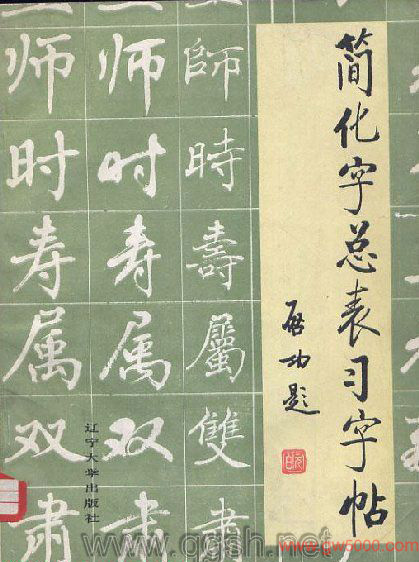 简化字总表习字帖
启功题
師時壽屬雙
师时寿属双肃
师时寿属双肃
辽宁大学出版社